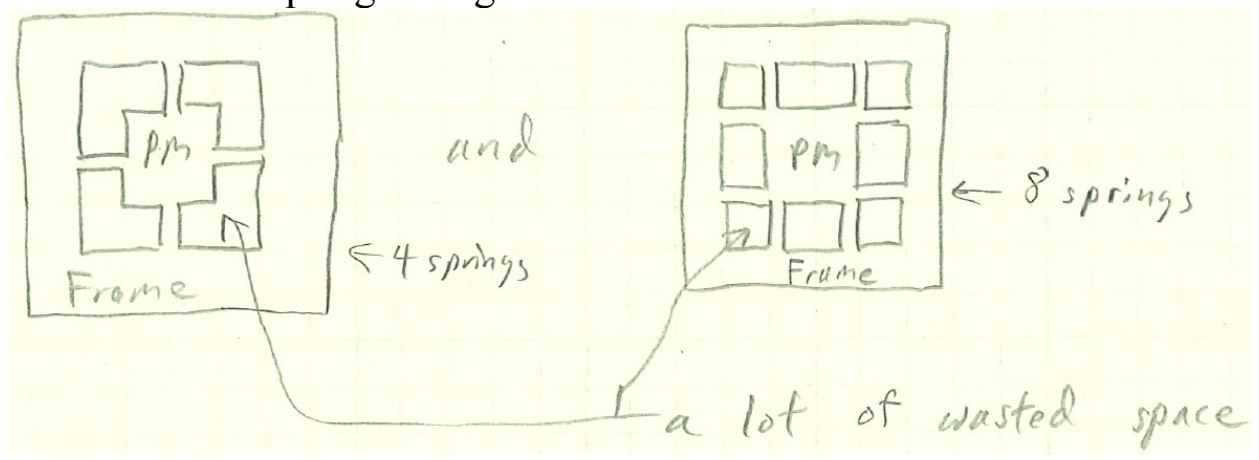 PM
Frame
← 4 springs
and
PM
Frame
← 8 springs
a lot of wasted space